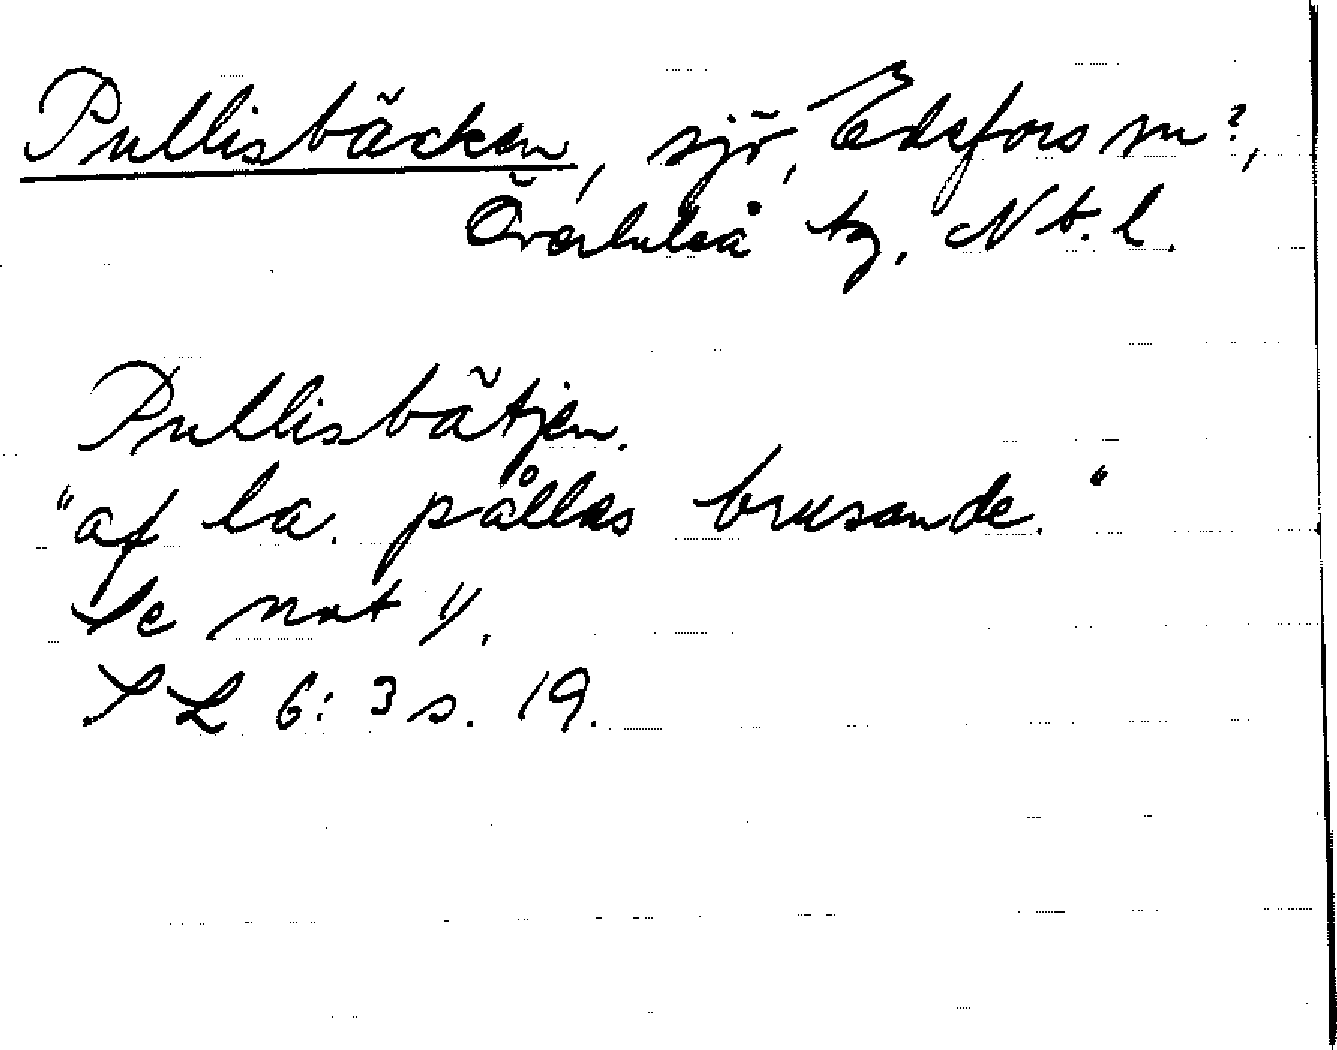 Pullisbäcken, sjö, Edefors sn?,
Överluleå tg, Nb. l.
Pullisbätjen.
"af la. pålles brusande."
Se not 1).
SL 6: 3 s. 19.